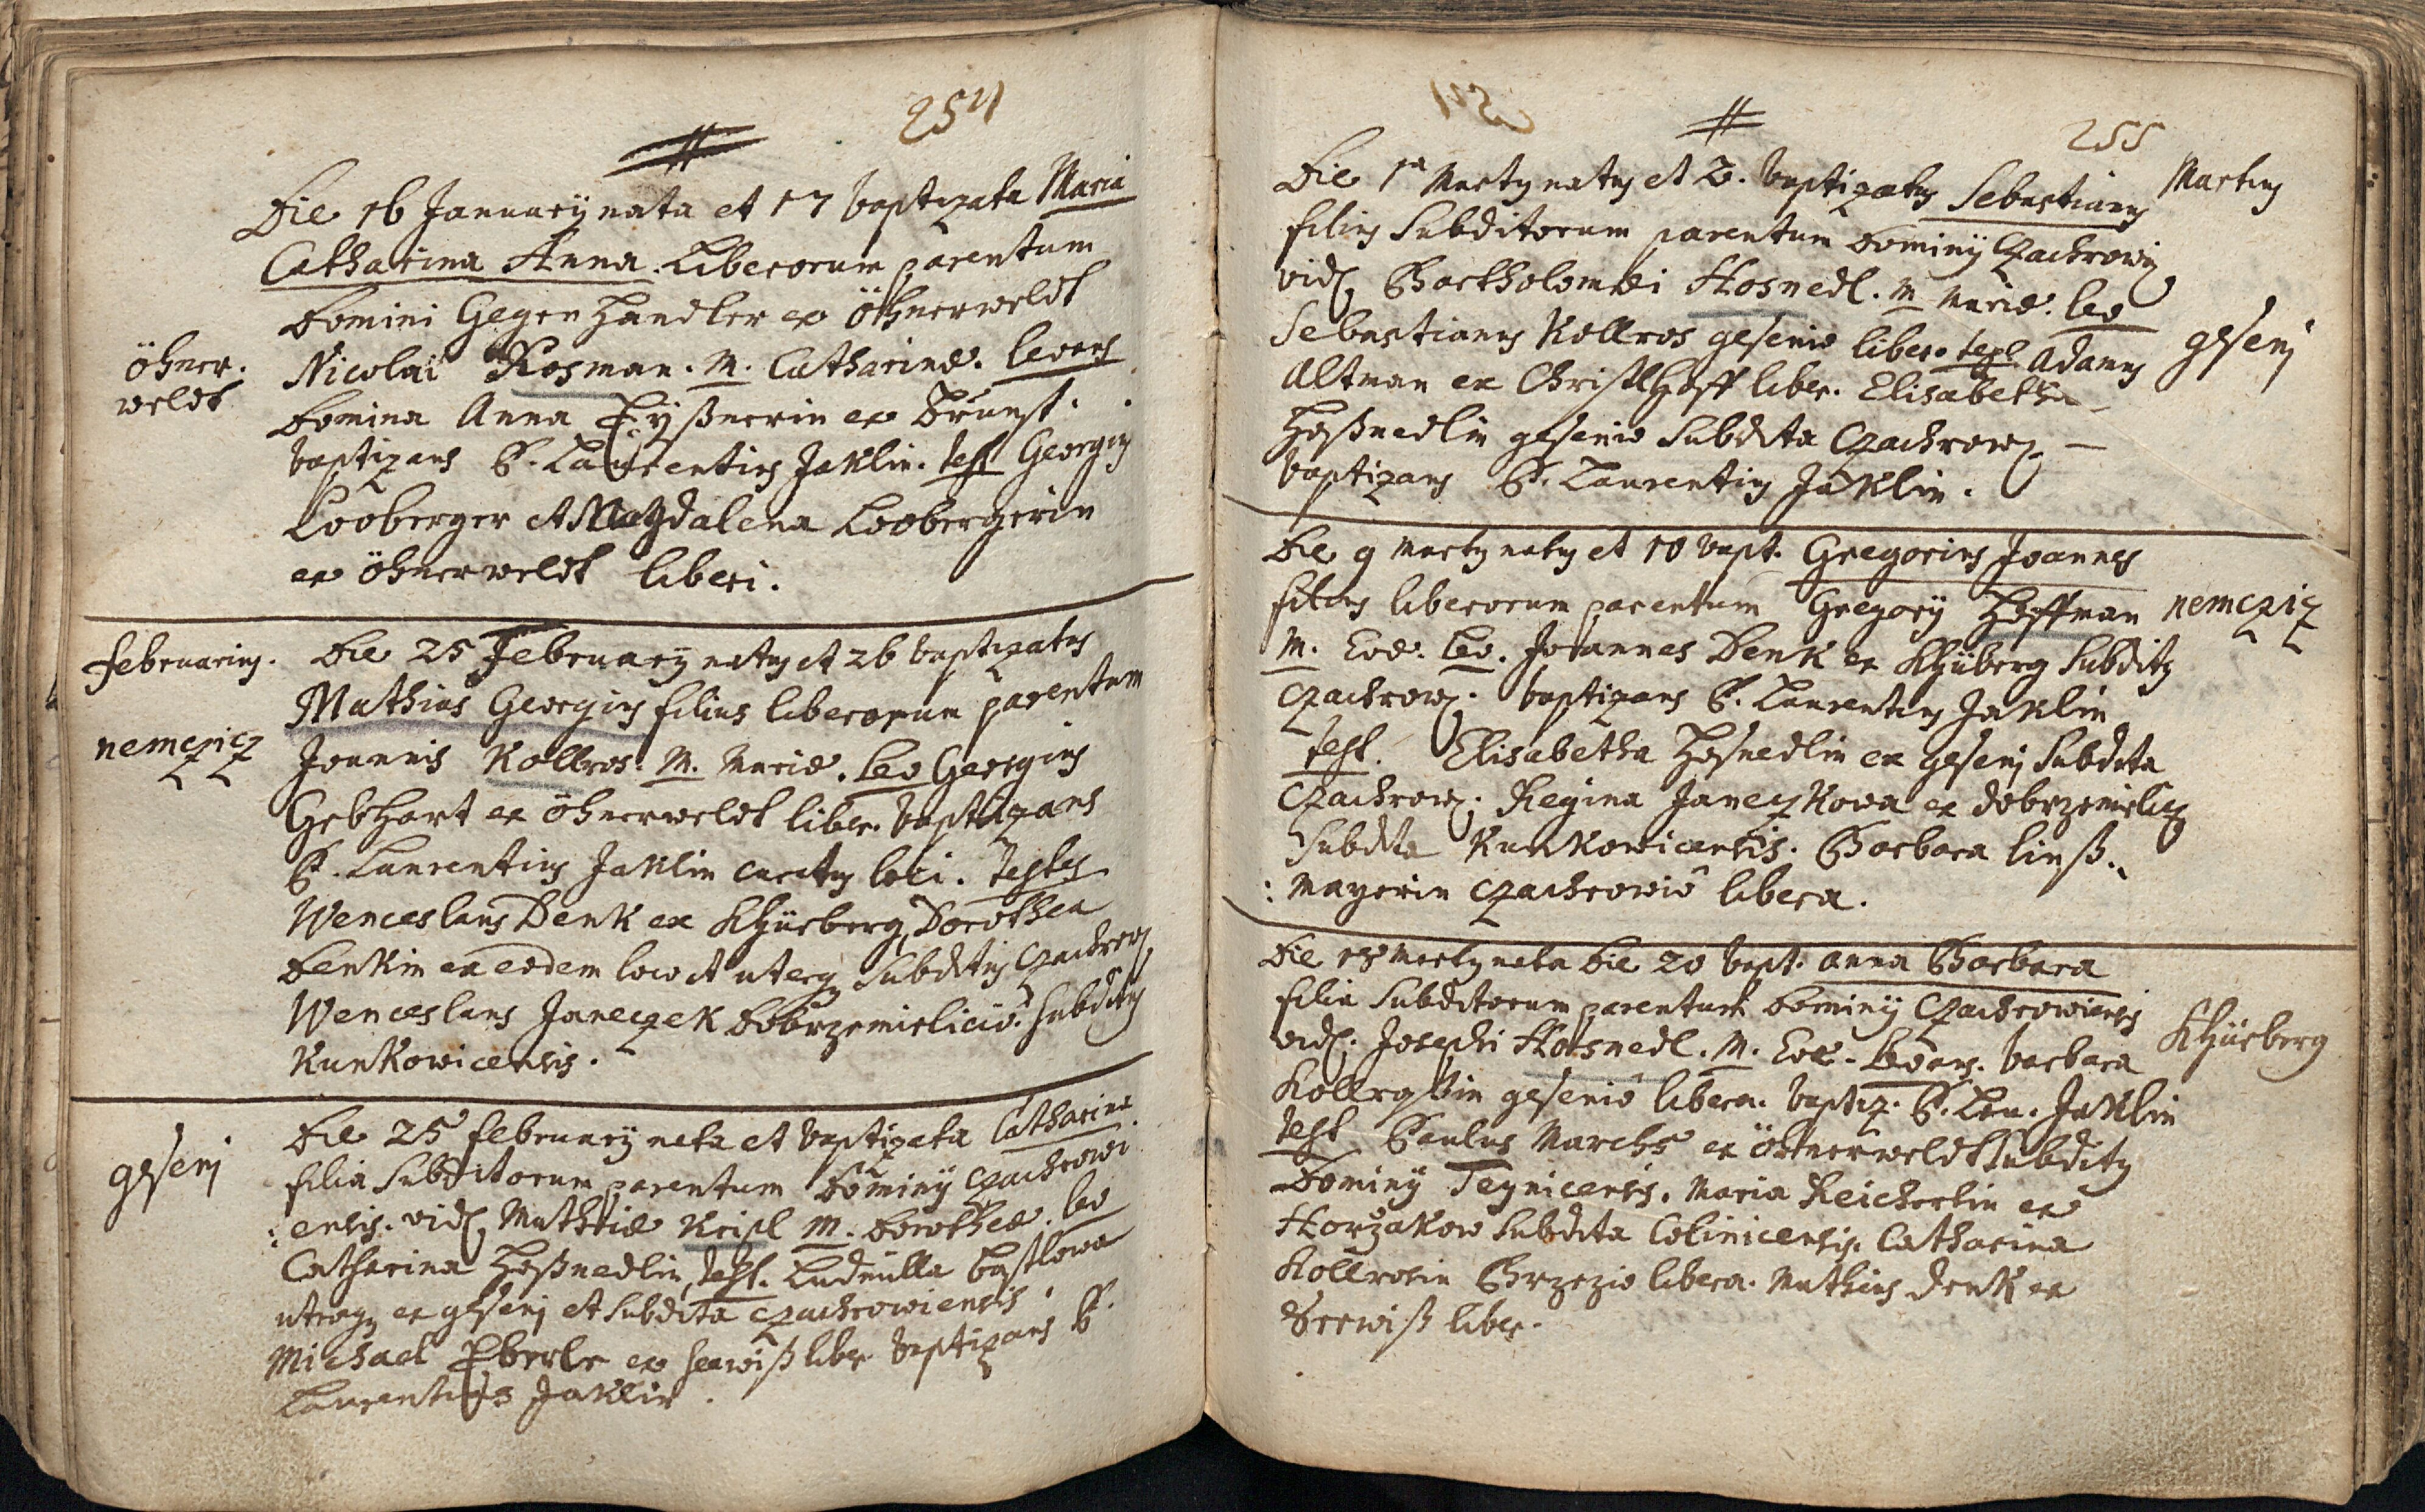 254
Die 16 Januarij nata et 17 baptizata Maria
Catharina Anna. Liberorum parentum
Domini Gegen Handler ex öhnerweldt
öhner.
weldt
Nicolai Kosman. M. Catharinæ. levans
Domina Anna Eyßnerin ex Drunst.
baptizans P. Laurentius Jaklin. test Georgius
Looberger et Magdalena Loobergerin
ex öhnerweldt liberi.
februarius.
Die 25 February natus et 26 baptizatus
Mathias Georgius filius liberorum parentum
nemczicz
Joannis Kollros. M. Mariæ. Lev Georgius
Gebhart ex öhnerweldt liber. baptizans
P. Laurentius Jaklin curatus loci. testes
Wenceslaus Denk ex Khüeberg, Dorothea
Denkin ex eodem loco et uterq subditus Czachrow
Wenceslaus Janeczek Dobrzemielicio. subditus
Kunkowicensis.
gesenj
Die 25 february nata et baptizata Catharina.
filia subditorum parentum Dominij Czachrowi
: ensis. vid Mathiæ Kripl M. Dorotheæ. lev
Catharina Hoßnedlin, test. Ludmilla bastlowa
utraq ex gesenj et subdita Czachrowiensis.
Michael Eberle ex seewiß liber baptizans P.
Laurentius Jaklin.
254
255
Die 1ma Martij natus et 2. baptizatus Sebastianus
Martius
filius subditorum parentum Dominij Czachrowi
vid Bartholomæi Hosnedl. M Mariæ. lev
Sebastianus Kollros gesenio liber. test Adamus
gesenj
Altman ex Christlhoff liber. Elisabetha
Hoßnedlin gesenio subdita Czachrow. —
baptizans P. Laurentius Jaklin.
Die 9 Martij natus et 10 bapt. Gregorius Joannes
filius liberorum parentum Gregorij Hoffman
nemcziz
M. Evæ. lev. Joannes Denk ex Khüberg subditus
Czachrow. baptizans P. Laurentius Jaklin
test. Elisabetha Hosnedlin ex gesenj subdita
Czachrow. Regina Janeczkowa ex dobrzemielicz
subdita Kunkowicensis. Barbara linß..
: Mayerin Czachrowio libera.
Die 18 Martij nata Die 20 bapt. Anna Barbara
filia subditorum parentum Dominij Czachrowiensis
Khüeberg
vid. Josephi Hosnedl. M. Evæ. Levans. barbara
Kollroßin gesenio libera. baptiz. P. Lau. Jaklin
test Paulus Marchs ex öhnerweldt subditus
Dominij Teynicensis. Maria Reicherlin ex
Horzakow subdita Colinicensis. Catharina
Kollrosin Brzezio libera. Mathias denk ex
Seewiß liber.